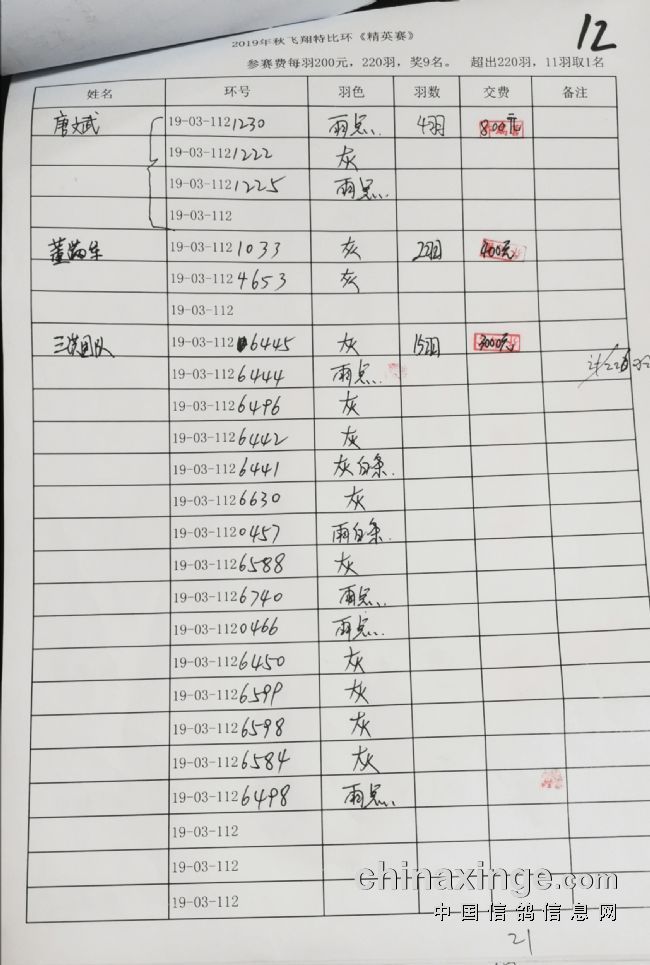 12
2019年秋飞翔特比环《精英赛》
参赛费每羽200元，220羽，奖9名。 超出220羽，11羽取1名
姓名 环号 羽色 羽数 交费 备注
唐文武 19-03-1121230 雨点 4羽 800元
19-03-1121222 灰
19-03-1121225 雨点
19-03-112
19-03-1121033 灰 2羽 400元
19-03-1124653 灰
19-03-112
团队 19-03-1126445 灰 15羽 3000元
19-03-1126444 雨点
19-03-1126496 灰
19-03-1126442 灰
19-03-1126441 灰白条
19-03-1126630 灰
19-03-1120457 雨白条
19-03-1126588 灰
19-03-1126740 雨点
19-03-1120466 雨点
19-03-1126450 灰
19-03-1126599 灰
19-03-1126598 灰
19-03-1126584 灰
19-03-1126498 雨点
19-03-112
19-03-112
19-03-112
chinaxinge.com
中国信鸽信息网
21